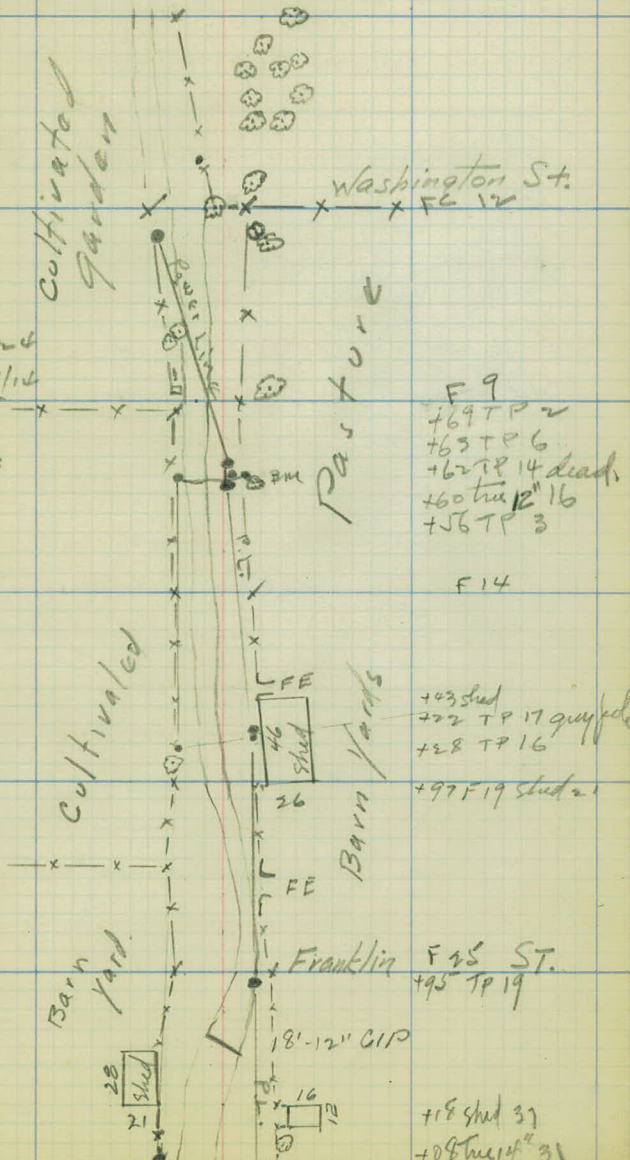 Cultivated
Garden
Washington St.
Pasture
F 9
+69 TP 2
+63 TP 6
+62 TP 14 dead
+60 tree 12" 16
+56 TP 3
BM
F 14
FE
Cultivated
46
Shed
26
Barn Yards
+43 shed
+22 TP 17 guy pole
+28 TP 16
+97 F 19 shed 21
FE
Franklin ST.
F 25
+95 TP 19
Barn
Yard
18'-12" CIP
28
Shed
21
16
12
+18 shed 37
+08 tree 14" 31